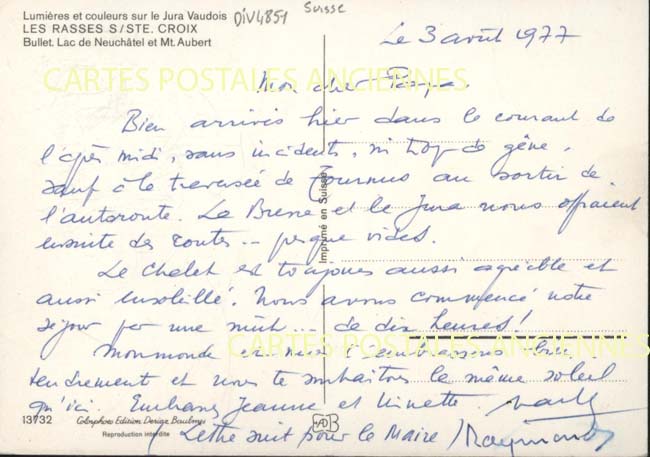 Lumières et couleurs sur le Jura Vaudois
LES RASSES S/STE. CROIX
Bullet. Lac de Neuchâtel et Mt. Aubert
DIV4851
Suisse
Le 3 août 1977
CARTES POSTALES ANCIENNES
Mon cher Papa.
Bien arrivés hier dans le courant de
l'après midi, sans incidents, ni trop de gêne,
sauf à la traversée de Tournus au sortir de
l'autoroute. La Bresse et le Jura nous offraient
ensuite des routes .. presque vides.
Le Chalet est toujours aussi agréable et
aussi ensoleillé. Nous avons commencé notre
séjour par une nuit... de dix heures!
CARTES POSTALES ANCIENNES
Mon monde et moi t'embrassons bien
tendrement et nous te souhaitons le même soleil
qu'ici. Embrasse Jeanne et Ninette.
Lettre suit pour le Maire / Raymonde
Imprimé en Suisse
13732
Colorphoto Edition Deriaz Baulmes
Reproduction interdite